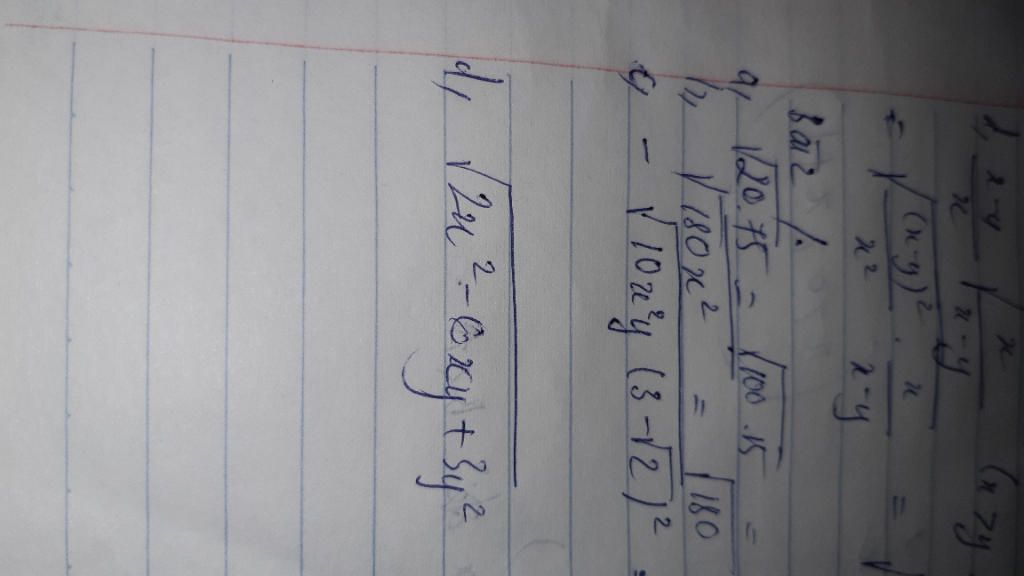 d, x-y/x √x/x-y (x>y
= √(x-y)²/x² . x/x-y = √
Bài 2 /.
a, √20.75 = √100.15 =
b, √180x² = √180
c, - √10x²y (3-√2)² =
d, √2x²-6xy+3y²